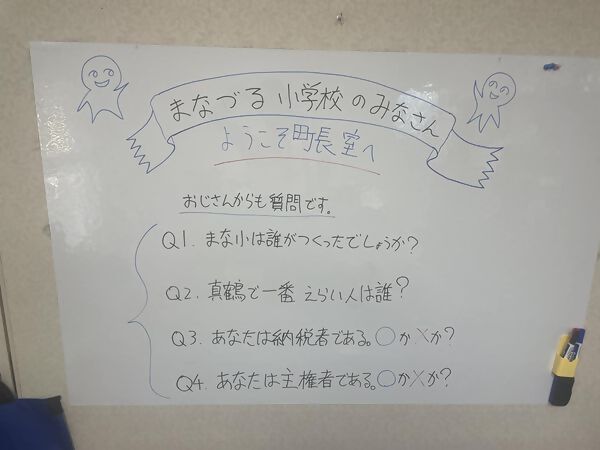 まなづる小学校のみなさん
ようこそ町長室へ
おじさんからも質問です。
Q1. まな小は誰がつくったでしょうか?
Q2. 真鶴で一番えらい人は誰?
Q3. あなたは納税者である。○か×か?
Q4. あなたは主権者である。○か×か?